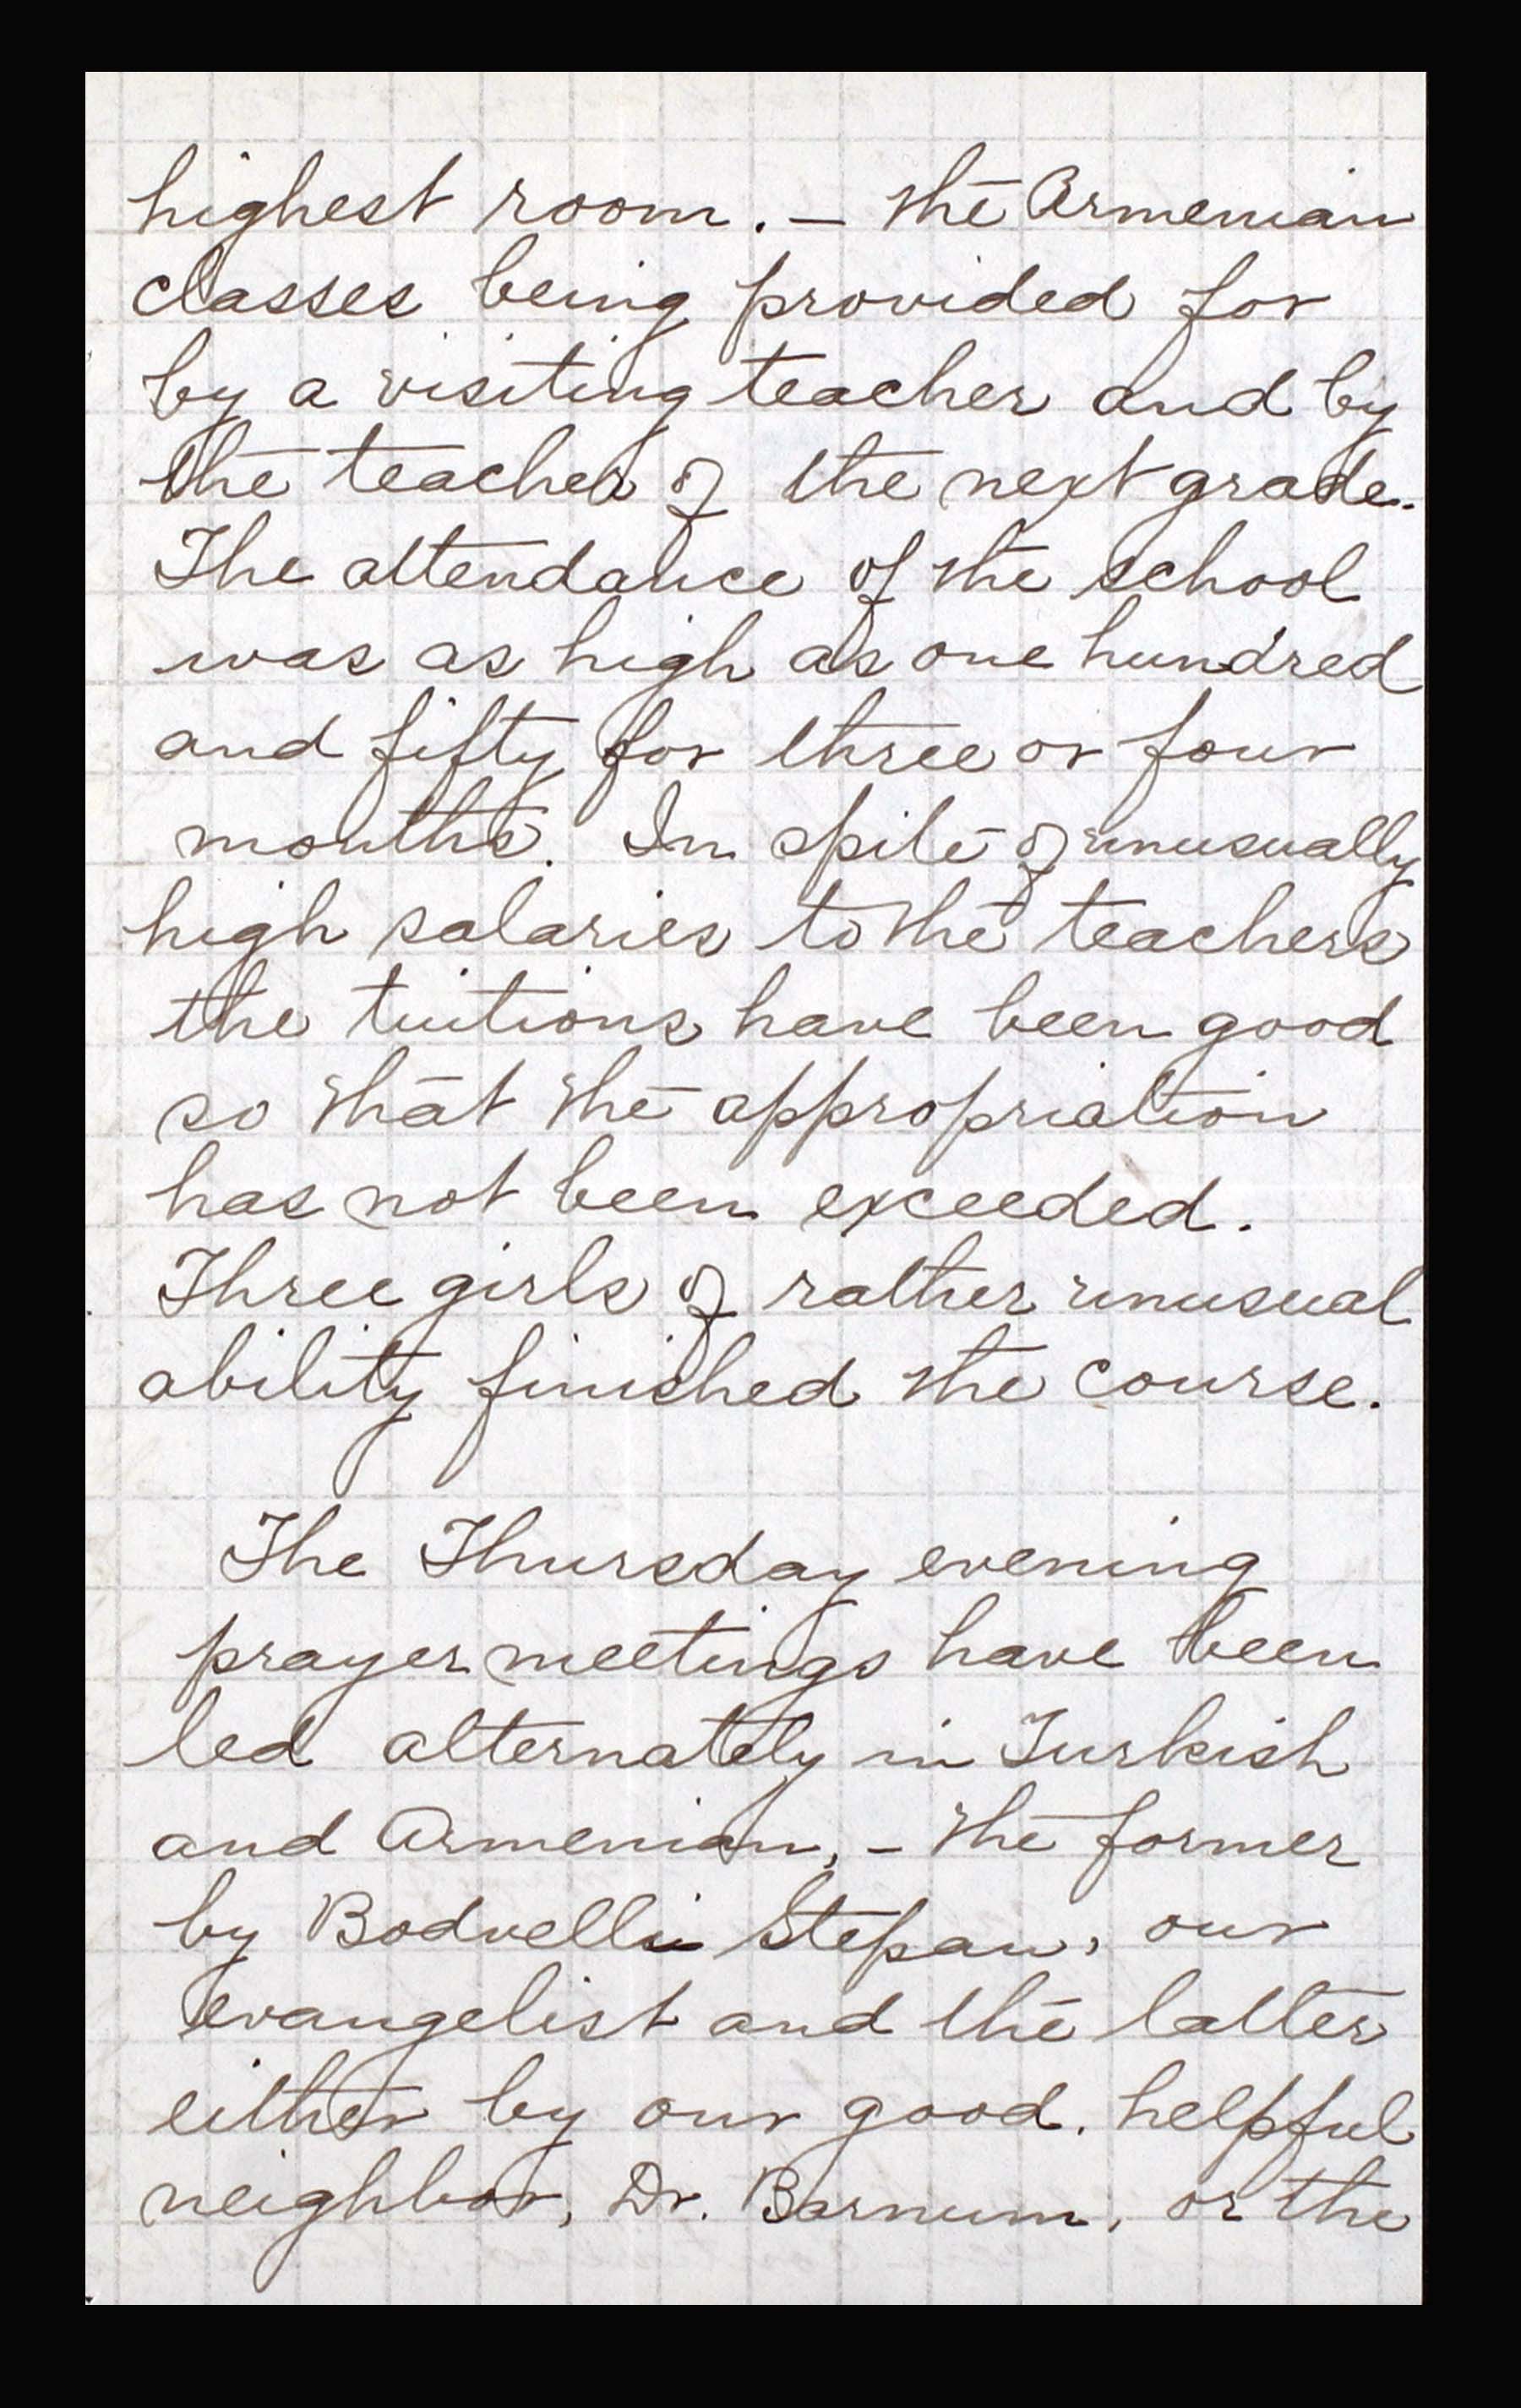 highest room. – the Armenian
classes being provided for
by a visiting teacher and by
the teacher of the next grade.
The attendance of the school
was as high as one hundred
and fifty for three or four
months. In spite of unusually
high salaries to the teachers
the tuitions have been good
so that the appropriation
has not been exceeded.
Three girls of rather unusual
ability finished the course.
The Thursday evening
prayer meetings have been
led alternately in Turkish
and Armenian, – the former
by Bodvelli Stepan, our
evangelist and the latter
either by our good, helpful
neighbor, Dr. Barnum, or the